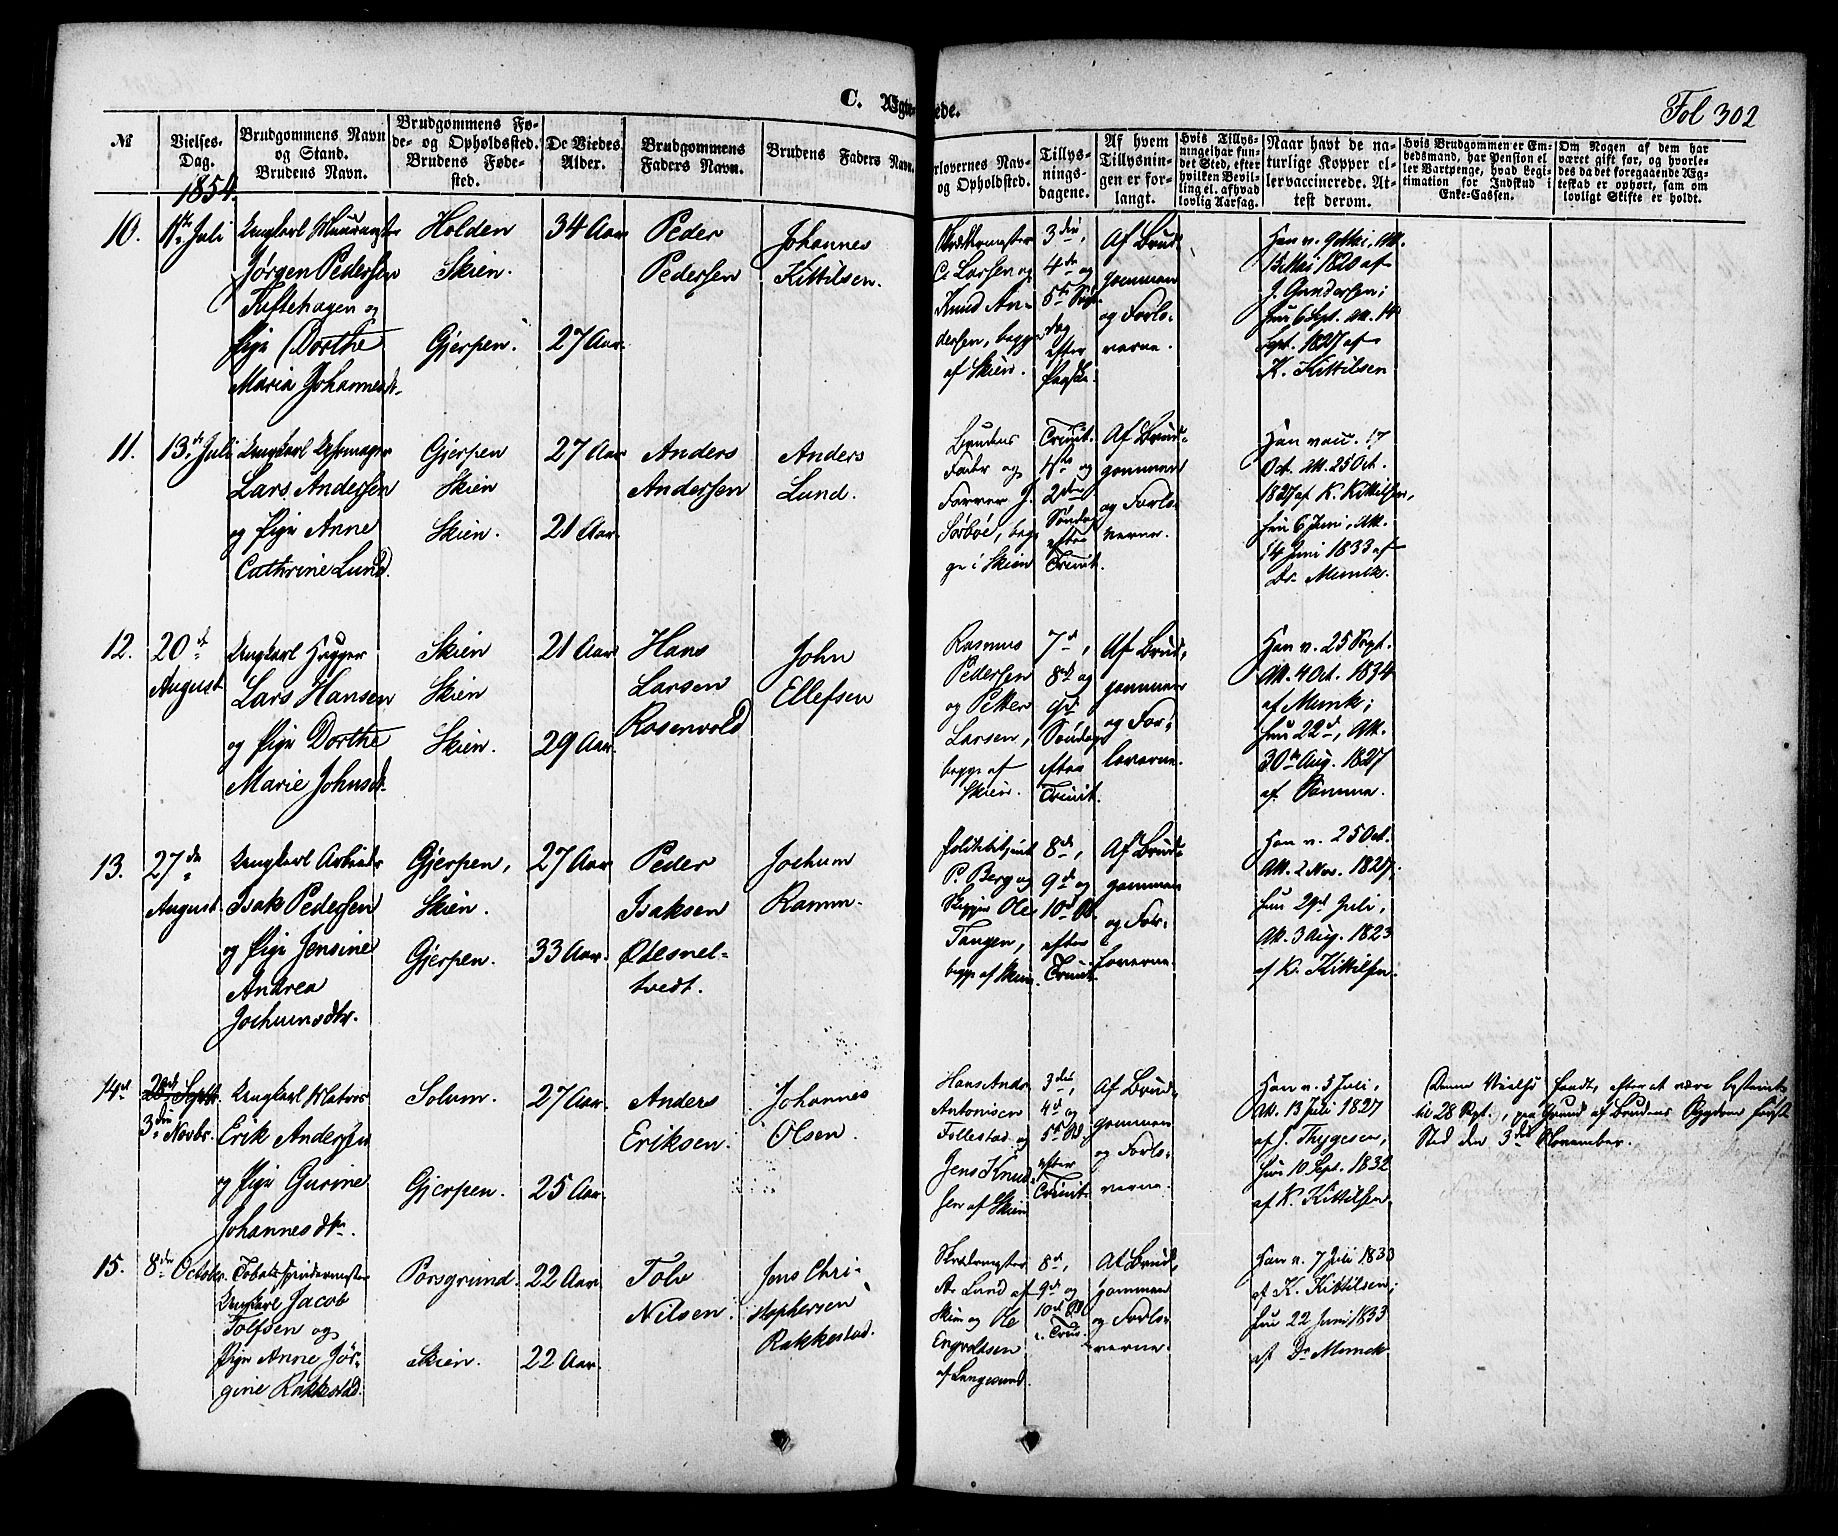 C. Ægte-
ede.
Fol 302
No
Vielses-
Dag.
Brudgommens Navn
og Stand.
Brudens Navn.
Brudgommens Fø-
de- og Opholdssted.
Brudens Føde-
sted.
De Viedes
Alder.
Brudgommens
Faders Navn.
Brudens Faders Navn.
rlovernes Nav-
og Opholdsted.
Tillys-
nings-
dagene.
Af hvem
Tillysnin-
gen er for-
langt.
Hvis Tillys-
ningel har fun-
det Sted, efter
hvilken Bevil-
ling el. afhvad
lovlig Aarsag.
Naar havt de na-
turlige Kopper el-
ler vaccinerede. At-
test derom.
Hvis Brudgommen er Em-
bedsmand, har Pension el
ler Vartpenge, hvad Legi-
timation for Indskud i
Enke-Cassen.
Om Nogen af dem har
været gift før, og hvorle-
des da det foregaaende Æg-
teskab er ophørt, sam om
lovligt Skifte er holdt.
1854.
10.
11te Juli
Ungkarl Muurmester
Jørgen Pedersen
Toftehagen og
Pige Dorthe
Maria Johannesdt.
Holden
Skien.
Gjerpen.
34 Aar
27 Aar.
Peder
Pedersen
Johannes
Kittilsen.
C. Larsen og
Knud An-
dersen, begge
af Skien.
3die,
4de og
5te
dag
efter
Paaske.
Af Brud-
gommen
og Forlo-
verne.
Han v. 9 Mai, Att.
15 Mai 1820 af
J. Gundersen;
hun 6 Sept. Att. 14
Sept. 1827 af
K. Kittilsen
11.
13de Juli
Ungkarl
Lars Andersen
og Pige Anne
Cathrine Lund.
Gjerpen
Skien
Skien.
27 Aar
21 Aar.
Anders
Andersen
Anders
Lund.
Brudens
Fader og
Farver J.
Sørbøe, beg-
ge i Skien
Trinit.
1ste og
2den
Søndag
efter
Trinit.
Af Brud-
gommen
og Forlo-
verne.
Han vac. 17
Oct. Att. 25 Oct.
1827 af K. Kittilsen,
hun 6 Juni, Att.
14 Juni 1833 af
Dr. Munck.
12.
20de
August
Ungkarl
Lars Hansen
og Pige Dorthe
Marie Johnsdt.
Skien
Skien
Skien.
21 Aar
29 Aar.
Hans
Larsen
Rosenvold
John
Ellefsen
Rasmus
Pedersen
og Petter
Larsen,
begge af
Skien.
7de,
8de og
9de
Søndag
efter
Trinit.
Af Brud-
gommen
og For-
loverne.
Han v. 25 Sept.
Att. 4 Oct. 1834
af Munk;
hun 22de, Att.
30te Aug. 1827
af
13.
27de
August
Ungkarl Arbeids
Isak Pedersen
og Pige Jensine
Andrea
Jochumsdtr.
Gjerpen,
Skien.
Gjerpen.
27 Aar
33 Aar.
Peder
Isaksen
Ødesnel-
tvedt.
Jochum
Ramm.
Politibetjent
P. Berg og
Skipper Ole
Tangen,
begge af Skien.
8de,
9de og
10de
efter
Trinit.
Af Brud-
gommen
og For-
loverne.
Han v. 25 Oct.
Att. 2 Nov. 1827,
hun 29de Juli,
Att. 3 Aug. 1823
af K. Kittilsen.
14de
28de Septbr.
3die Novbr.
Ungkarl Matros
Erik Andersen
og Pige Gurine
Johannesdtr.
Solum.
Gjerpen.
27 Aar.
25 Aar.
Anders
Eriksen.
Johannes
Olsen.
Hans Andr.
Antonisen
Follestad og
Jens Knud-
sen af Skien
3die,
4de og
5te
efter
Trinit.
Af Brud-
gommen
og Forlo-
verne.
Han v. 5 Juli,
Att. 13 Juli 1827
af J. Thygesen,
hun 10 Sept. 1832
af K. Kittilsen.
Denne Vielse fandt, efter at være bestemt
til 28 Sept., paa Grund af Brudens Sygdom først
Sted den 3die November.
15.
8de Octobr.
Tobaksspindermester
Ungkarl Jacob
Tolfsen og
Pige Anne Jør-
gine Rakkestad.
Porsgrund.
Skien.
22 Aar.
22 Aar.
Tolv
Nilsen.
Jens Chri-
stophersen
Rakkestad.
Lund af
Skien og Ole
Engvoldsen
af Langesund.
8de,
9de og
10de
e. Trin.
Af Brud-
gommen
og Forlo-
verne.
Han v. 7 Juli 1833
af K. Kittilsen;
hun 22 Juni 1833
af Dr Munck